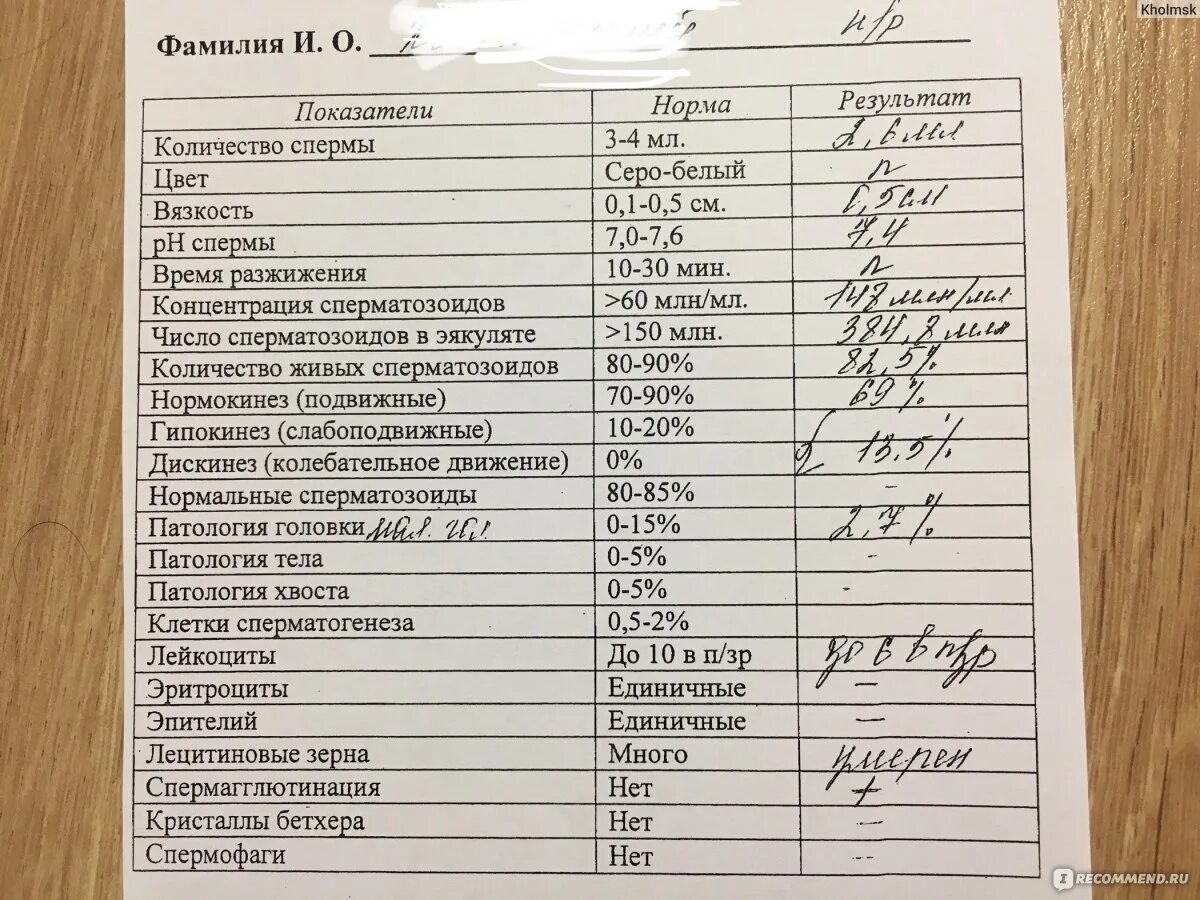 Kholmsk
Фамилия И. О. н/р
Показатели Норма Результат
Количество спермы 3-4 мл. 2,6 мл
Цвет Серо-белый N
Вязкость 0,1-0,5 см. 0,5 см
pH спермы 7,0-7,6 7,4
Время разжижения 10-30 мин. N
Концентрация сперматозоидов >60 млн/мл. 148 млн/мл
Число сперматозоидов в эякуляте >150 млн. 384,8 млн
Количество живых сперматозоидов 80-90% 82,5%
Нормокинез (подвижные) 70-90% 69%
Гипокинез (слабоподвижные) 10-20%
Дискинез (колебательное движение) 0% 13,5%
Нормальные сперматозоиды 80-85% -
Патология головки мал. гол. 0-15% 2,7%
Патология тела 0-5% -
Патология хвоста 0-5% -
Клетки сперматогенеза 0,5-2%
Лейкоциты До 10 в п/зр до 6 в п/зр
Эритроциты Единичные —
Эпителий Единичные —
Лецитиновые зерна Много умерен
Спермагглютинация Нет +
Кристаллы бетхера Нет —
Спермофаги Нет —
IRECOMMEND.RU